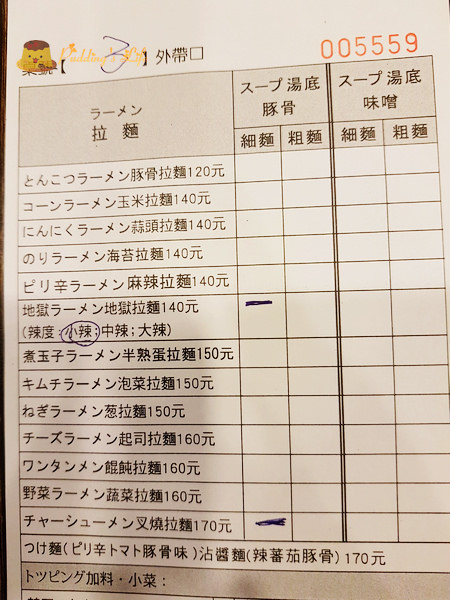 Pudding's Life
桌號【 3 】外帶口
005559
ラーメン
拉麵
スープ湯底
豚骨
スープ湯底
味噌
細麵 粗麵 細麵 粗麵
とんこつラーメン豚骨拉麵120元
コーンラーメン玉米拉麵140元
にんにくラーメン蒜頭拉麵140元
のりラーメン海苔拉麵140元
ピリ辛ラーメン麻辣拉麵140元
地獄ラーメン地獄拉麵140元
(辣度:小辣;中辣;大辣)
煮玉子ラーメン半熟蛋拉麵150元
キムチラーメン泡菜拉麵150元
ねぎラーメン葱拉麵150元
チーズラーメン起司拉麵160元
ワンタンメン餛飩拉麵160元
野菜ラーメン蔬菜拉麵160元
チャーシューメン叉燒拉麵170元
つけ麵(ピリ辛トマト豚骨味)沾醬麵(辣蕃茄豚骨)170元
トッピング加料・小菜: